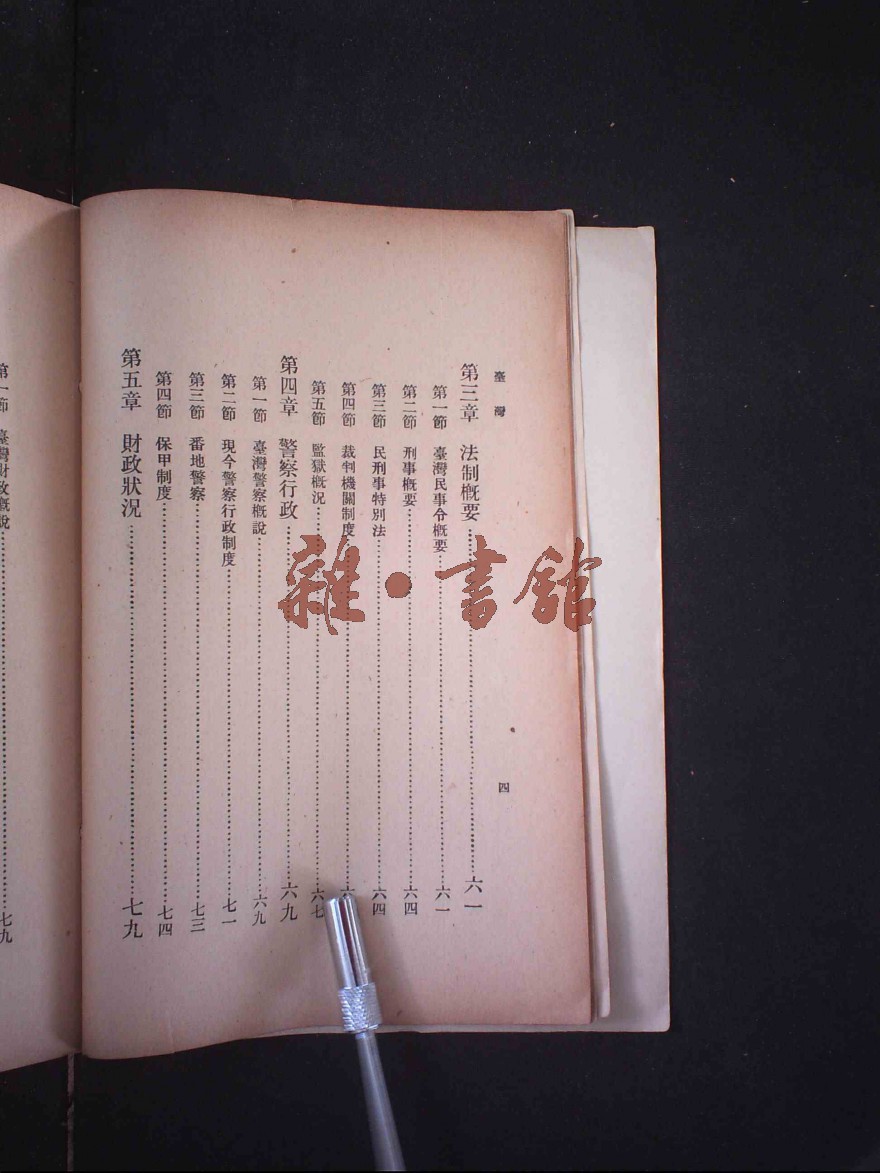 臺灣
四
第三章 法制概要……六一
第一節 臺灣民事令概要……六一
第二節 刑事概要……六四
第三節 民刑事特別法……六四
第四節 裁判機關制度……六
第五節 監獄概況……六七
第四章 警察行政……六九
第一節 臺灣警察概說……六九
第二節 現今警察行政制度……七一
第三節 番地警察……七三
第四節 保甲制度……七四
第五章 財政狀况……七九
第一節 臺灣財政概說……七九
雜·書館